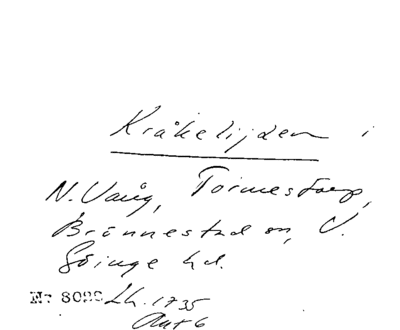 Kråkelijden i
N. Vång, Tormestorp,
Brönnestad sn, V.
Göinge hd.
Nr 8098 Lh. 1735
Akt 6